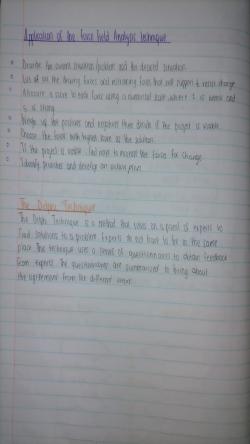 Application of the Force Field Analysis technique
Describe the current situation/problem and the desired situation.
List all the driving forces and restraining forces that will support & resist change
Allocate a score to each force using a numerical scale where 1 is weak and
5 is strong
Weigh up the positives and negatives then decide if the project is viable
Choose the force with highest score as the solution.
If the project is viable, find ways to increase the force for change
Identify priorities and develop an action plan
The Delphi Technique
The Delphi Technique is a method that relies on a panel of experts to
find solutions to a problem. Experts do not have to be in the same
place. This technique uses a series of questionnaires to obtain feedback
from experts. The questionnaires are summarised to bring about
the agreement from the different